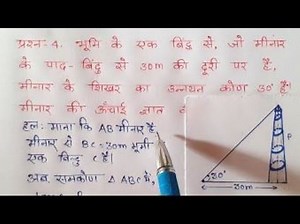 प्रश्न-4. भूमि के एक बिंदु से, जो मीनार
के पाद-बिंदु से 30m की दूरी पर है,
मीनार के शिखर का उन्नयन कोण 30° है।
मीनार की ऊँचाई ज्ञात
हल:- माना कि AB मीनार है
मीनार से BC=30m भूमी
एक बिन्दु C है।
अब समकोण ΔABC में,
30°
30m